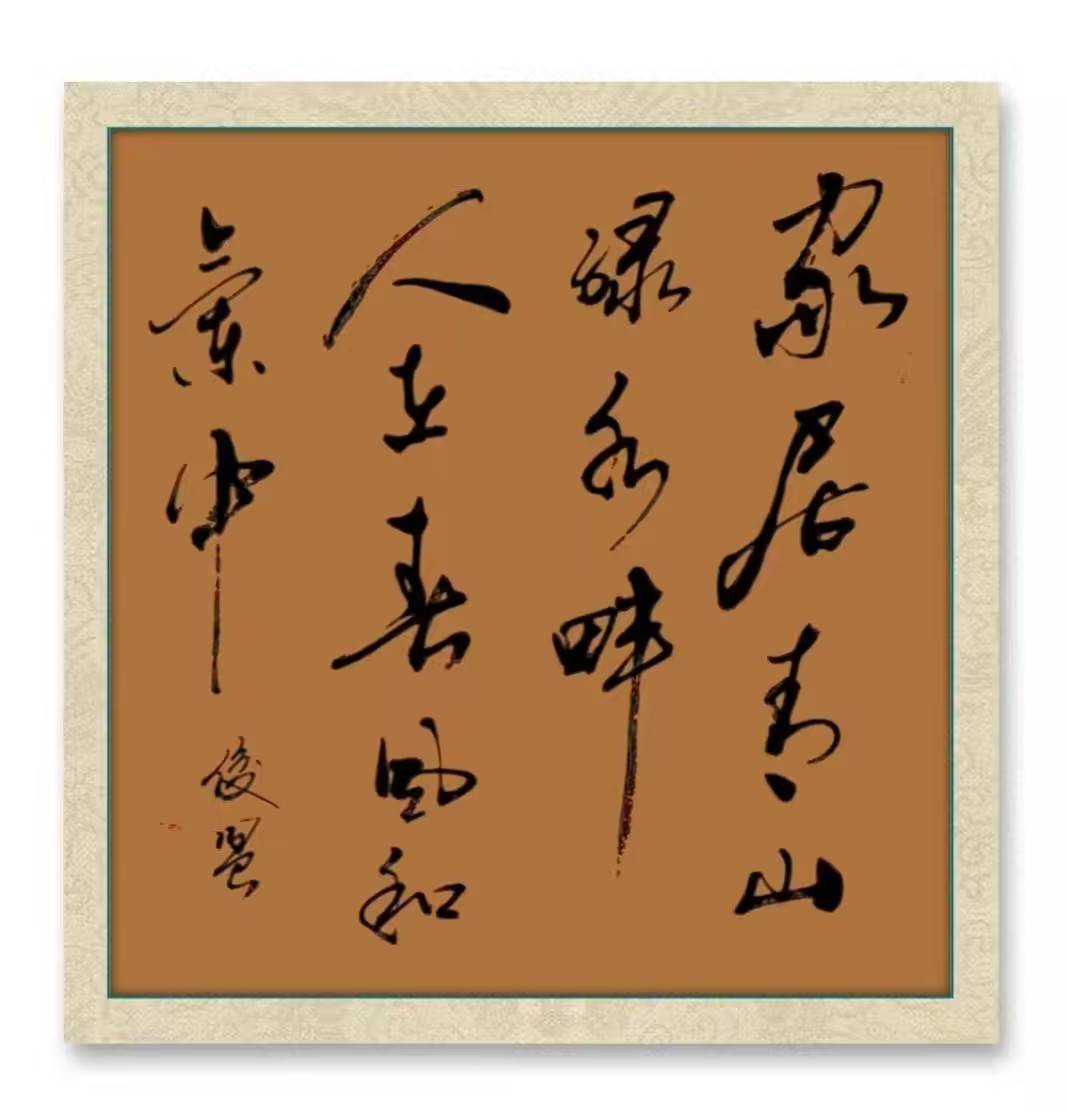 家居青山
绿水畔
人在春风和
氣中
俊